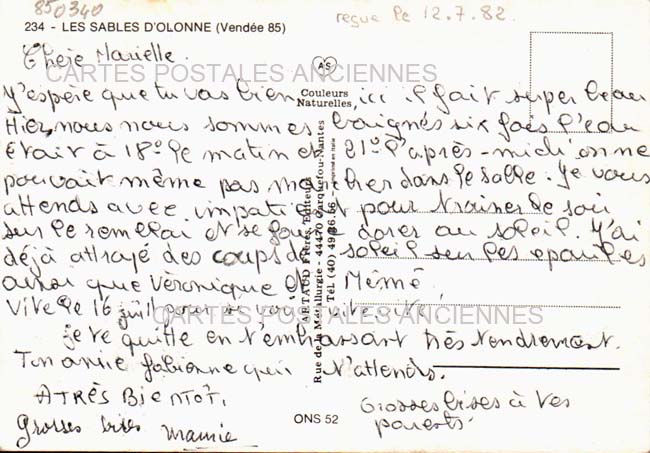 850340
234 - LES SABLES D'OLONNE (Vendée 85)
reçue le 12.7.82.
Chère Marielle.
AS
CARTES POSTALES ANCIENNES
J'espère que tu vas bien, ici il fait super beau
Couleurs
Naturelles,
Hier nous nous sommes baignés six fois l'eau
était à 18° le matin et 21° l'après-midi on ne
pouvait même pas marcher dans le sable. Je vous
attends avec impatient pour trainer le soir
sur le remblai et se faire dorer au soleil. J'ai
déjà attrapé des coups de soleil sur les épaules
ainsi que Véronique et Mémé
Vite le 16 juil pour vite vite,
CARTES POSTALES ANCIENNES
je te quitte en t'embrassant très tendrement.
Ton amie fabienne qui t'attends.
A TRÈS BIENTOT.
Grosses bises à tes
parents.
Grosses bises mamie
ARTAUD Frères, Editeurs
Rue de la Métallurgie - 44470 Carquefou-Nantes
Tél (40) 49.26.56
Imprimé en Italie
ONS 52